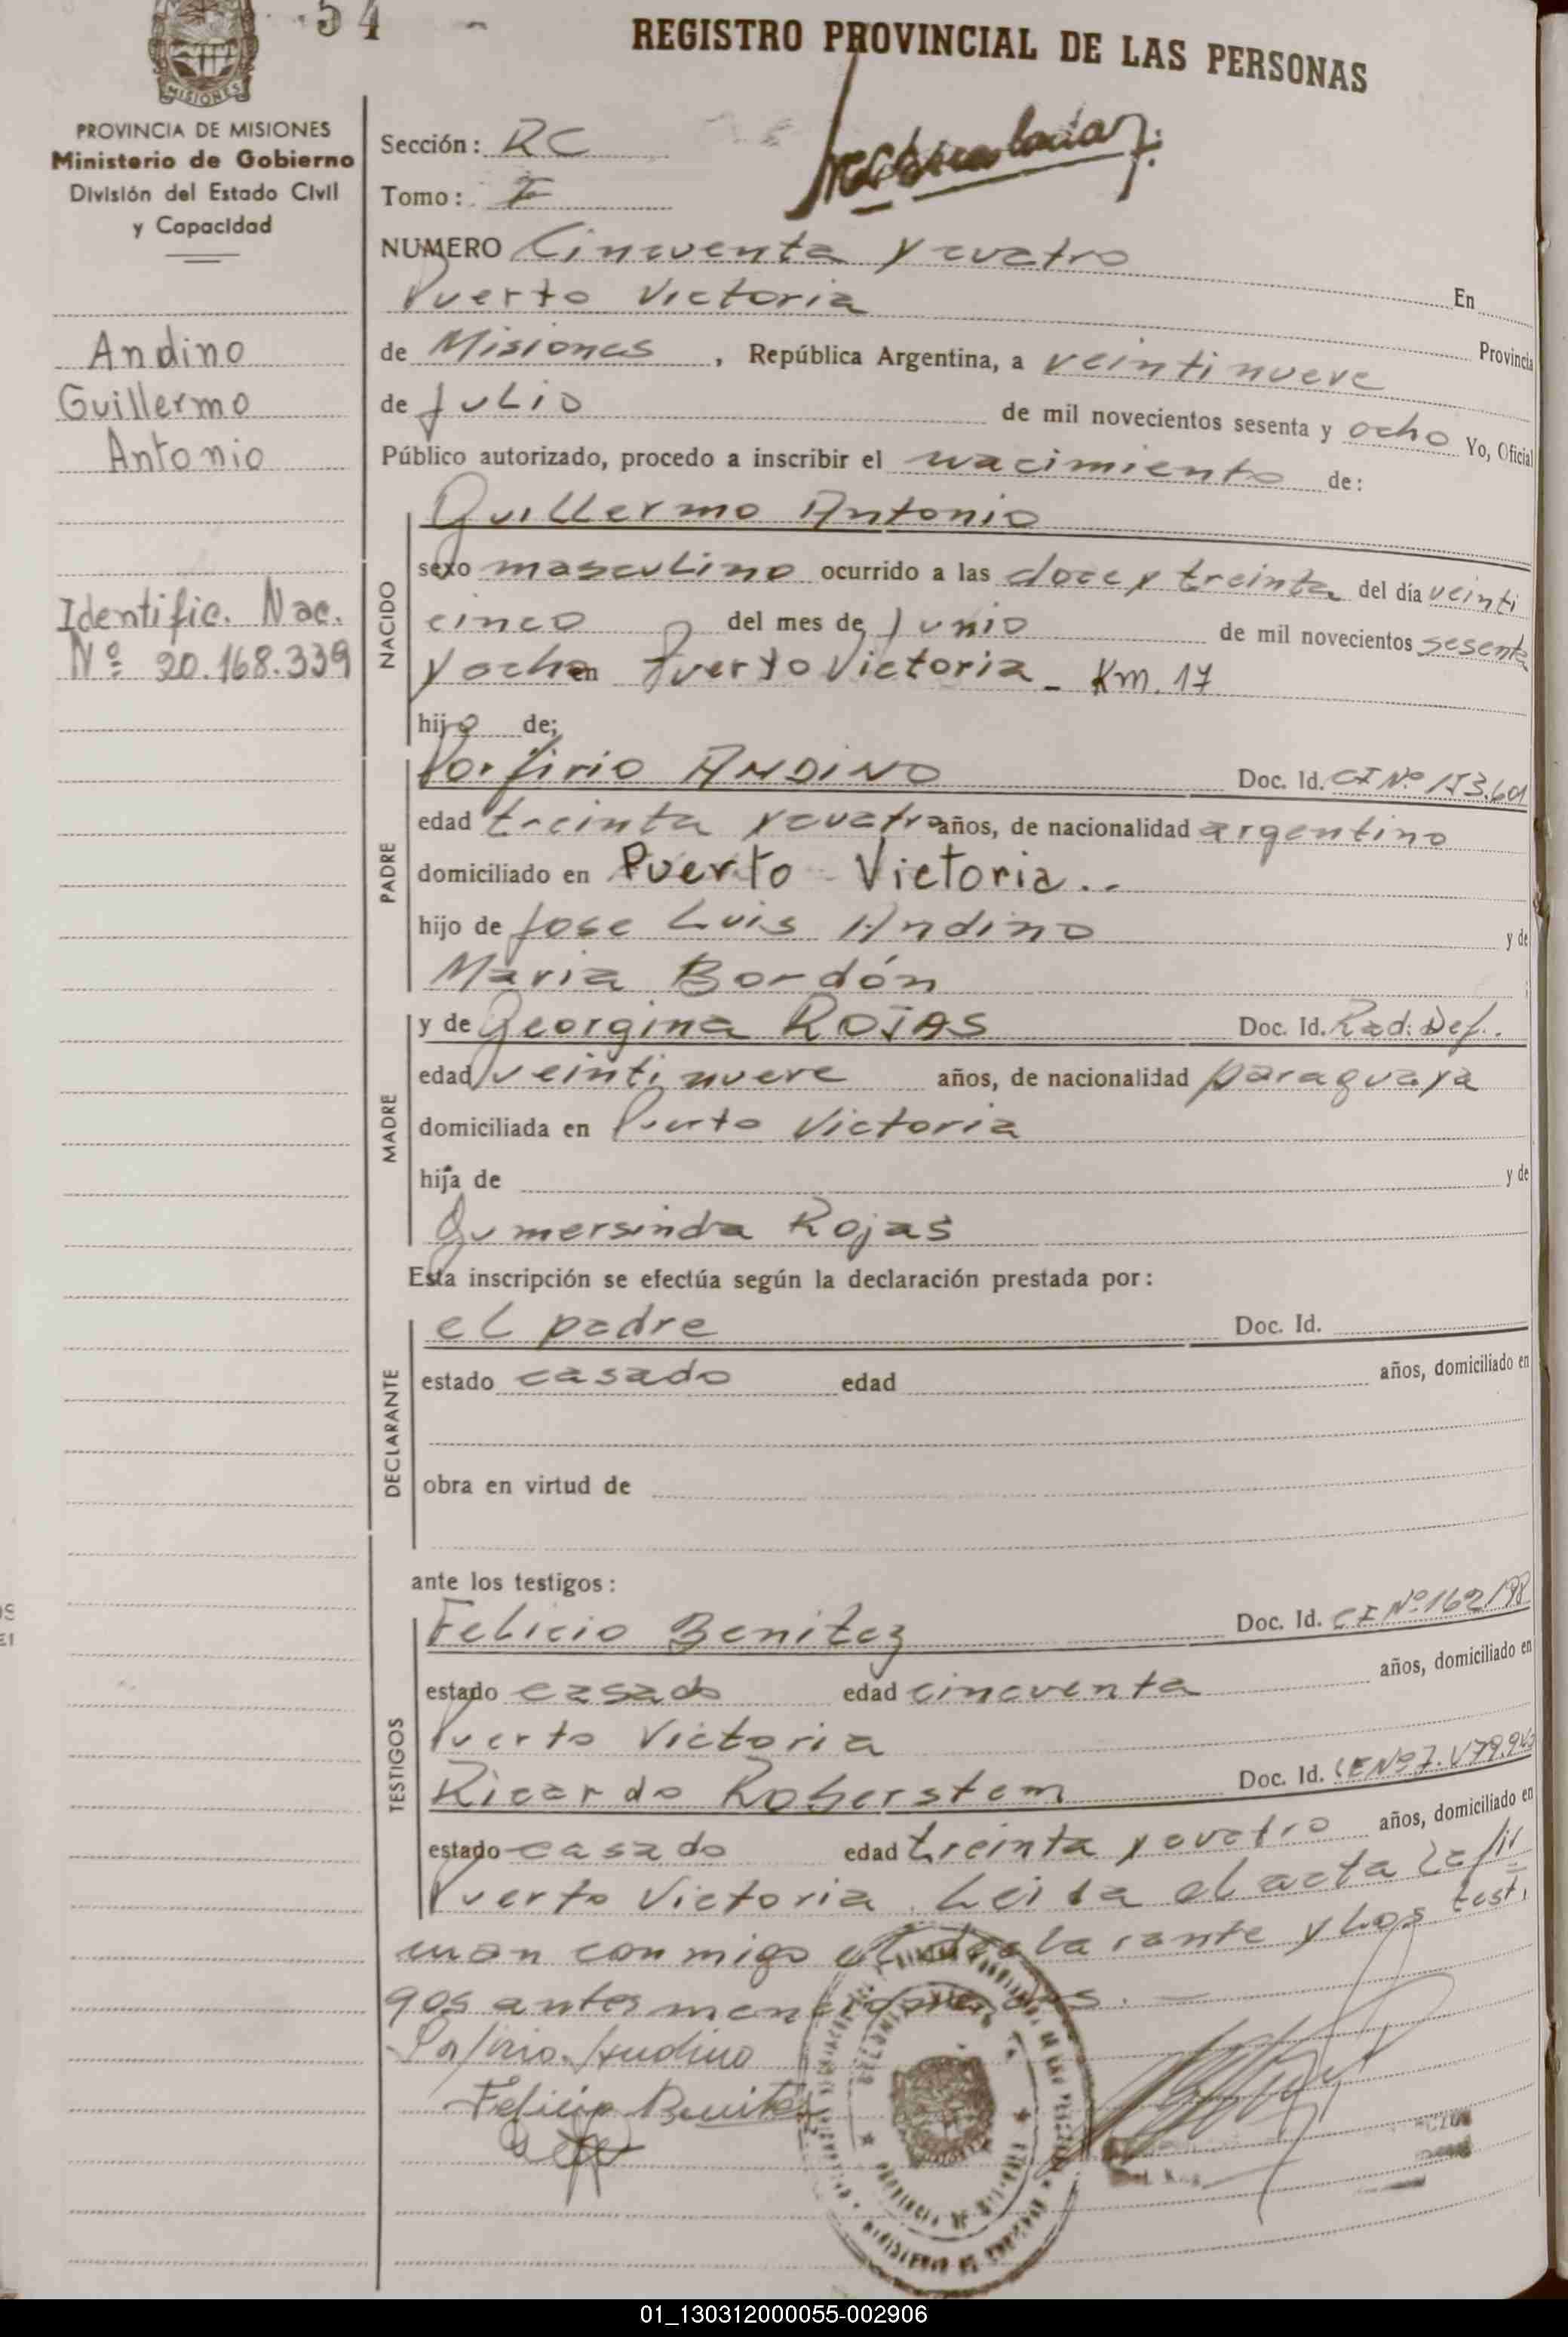 54
REGISTRO PROVINCIAL DE LAS PERSONAS
MISIONES
PROVINCIA DE MISIONES
Ministerio de Gobierno
División del Estado Civil
y Capacidad
Andino
Guillermo
Antonio
Identific. Nac.
Nº 20.168.339
Sección: RC
Tomo: I
NUMERO Cincuenta y cuatro En
Puerto Victoria Provincia
de Misiones, República Argentina, a veintinueve
de Julio de mil novecientos sesenta y ocho Yo, Oficial
Público autorizado, procedo a inscribir el nacimiento de:
NACIDO
Guillermo Antonio
sexo masculino ocurrido a las doce y treinta del día veinti
cinco del mes de Junio de mil novecientos sesenta
y ocho en Puerto Victoria - Km. 17
hijo de;
PADRE
Porfirio ANDINO Doc. Id. CI Nº 153.601
edad treinta y cuatro años, de nacionalidad argentino
domiciliado en Puerto Victoria..
hijo de Jose Luis Andino y de
Maria Bordón
MADRE
y de Georgina ROJAS Doc. Id. Rad. Def.
edad veintinueve años, de nacionalidad paraguaya
domiciliada en Puerto Victoria
hija de y de
Gumersinda Rojas
Esta inscripción se efectúa según la declaración prestada por:
DECLARANTE
el padre Doc. Id.
estado casado edad años, domiciliado en
obra en virtud de
ante los testigos:
TESTIGOS
Felicio Benitez Doc. Id. CI Nº
estado casado edad cincuenta años, domiciliado en
Puerto Victoria
Ricardo Roberstem Doc. Id.
estado casado edad treinta y cuatro años, domiciliado en
Puerto Victoria. Leida el acta la fir
man conmigo el declarante y los testi
gos antes mencionados. —
Porfirio Andino
Felicio Benitez
01_130312000055-002906